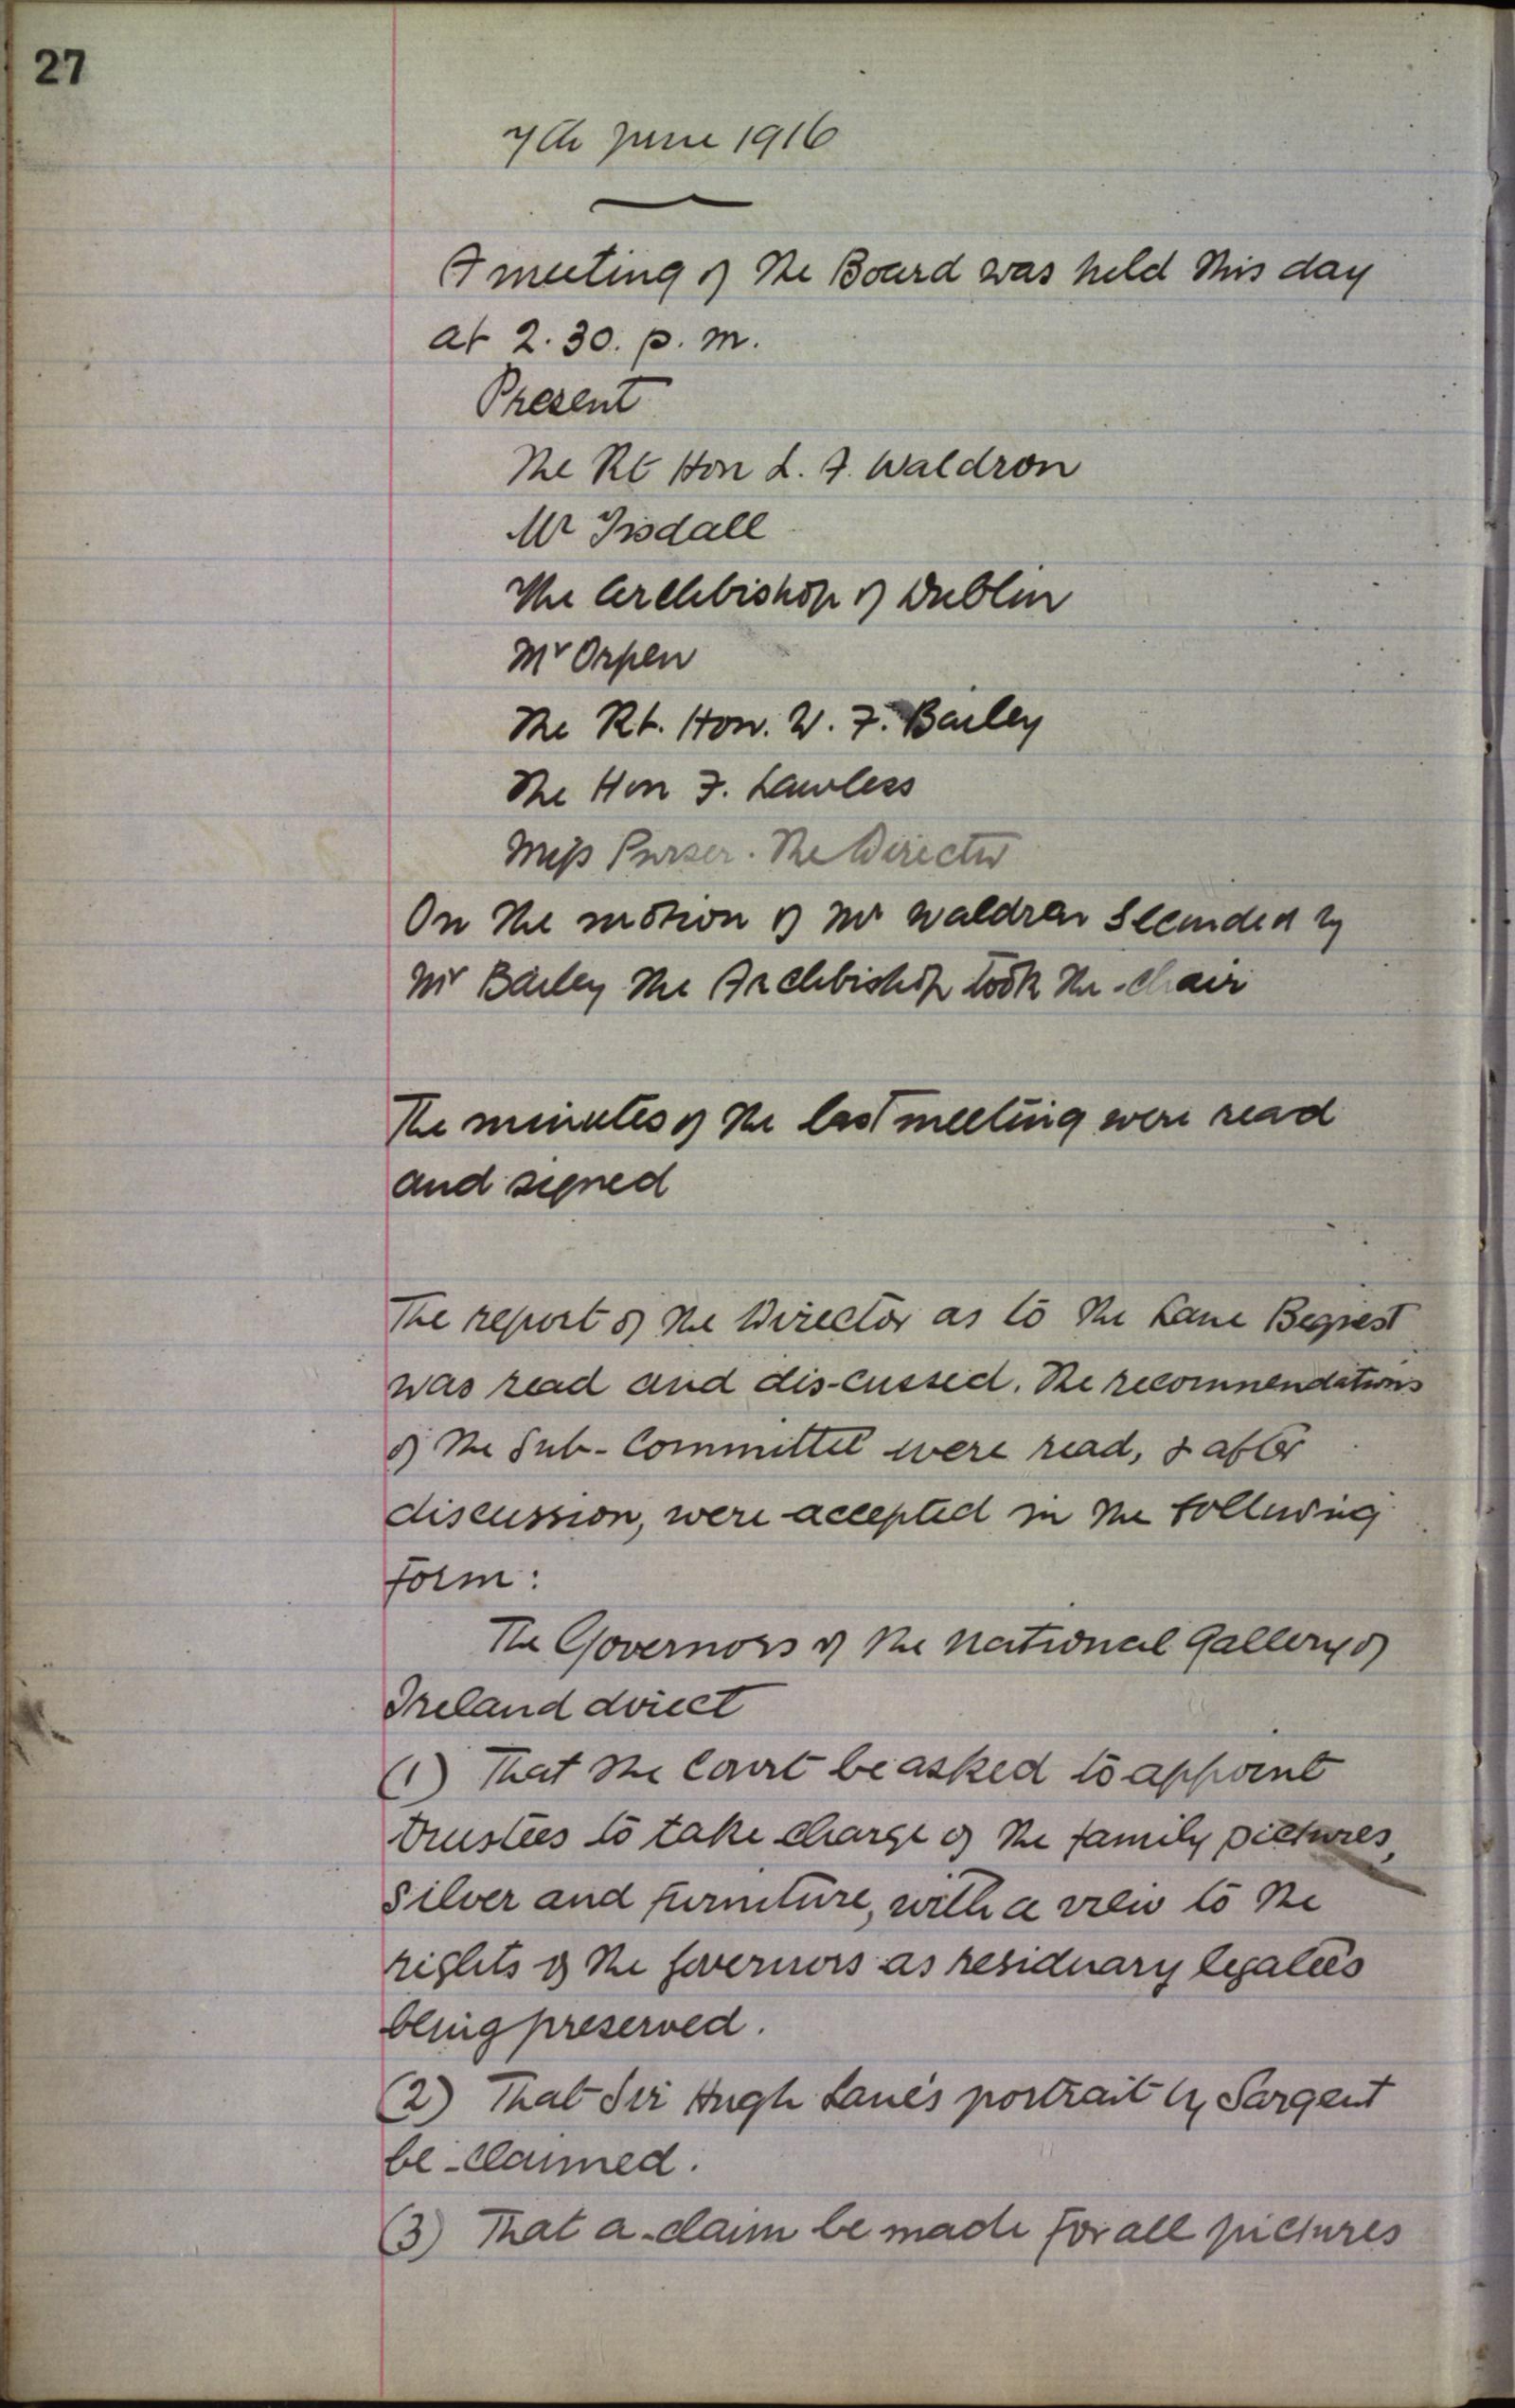 27
7th June 1916
A meeting of the Board was held this day
at 2.30. p. m.
Present
The Rt Hon L. A. Waldron
Mr Tisdall
The Archbishop of Dublin
Mr Orpen
The Rt. Hon. W. F. Bailey
The Hon F. Lawless
Miss Purser. The Director
On the motion of Mr Waldron seconded by
Mr Bailey the Archbishop took the chair
The minutes of the last meeting were read
and signed
The report of the Director as to the Lane Bequest
was read and dis-cussed. The recommendations
of the Sub-Committee were read, & after
discussion, were accepted in the following
form:
The Governors of the National Gallery of
Ireland direct
(1) That the Court be asked to appoint
trustees to take charge of the family pictures,
silver and furniture, with a view to the
rights of the Governors as residuary legatees
being preserved.
(2) That Sir Hugh Lane's portrait by Sargent
be claimed.
(3) That a claim be made for all pictures